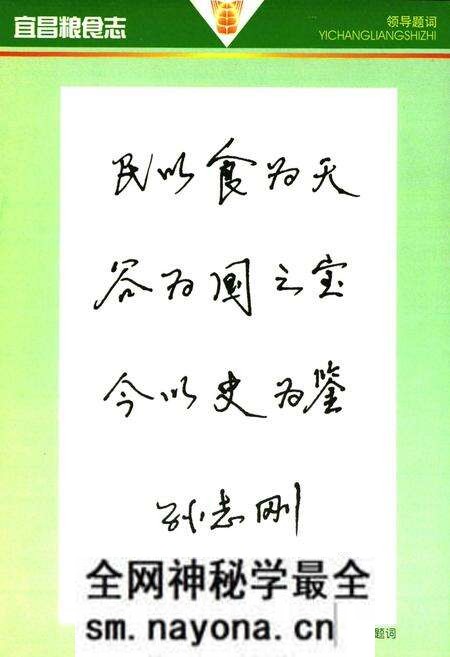 宜昌粮食志
领导题词
YICHANGLIANGSHIZHI
民以食为天
谷为国之宝
今以史为鉴
孙志刚
全网神秘学最全
sm.nayona.cn
题词